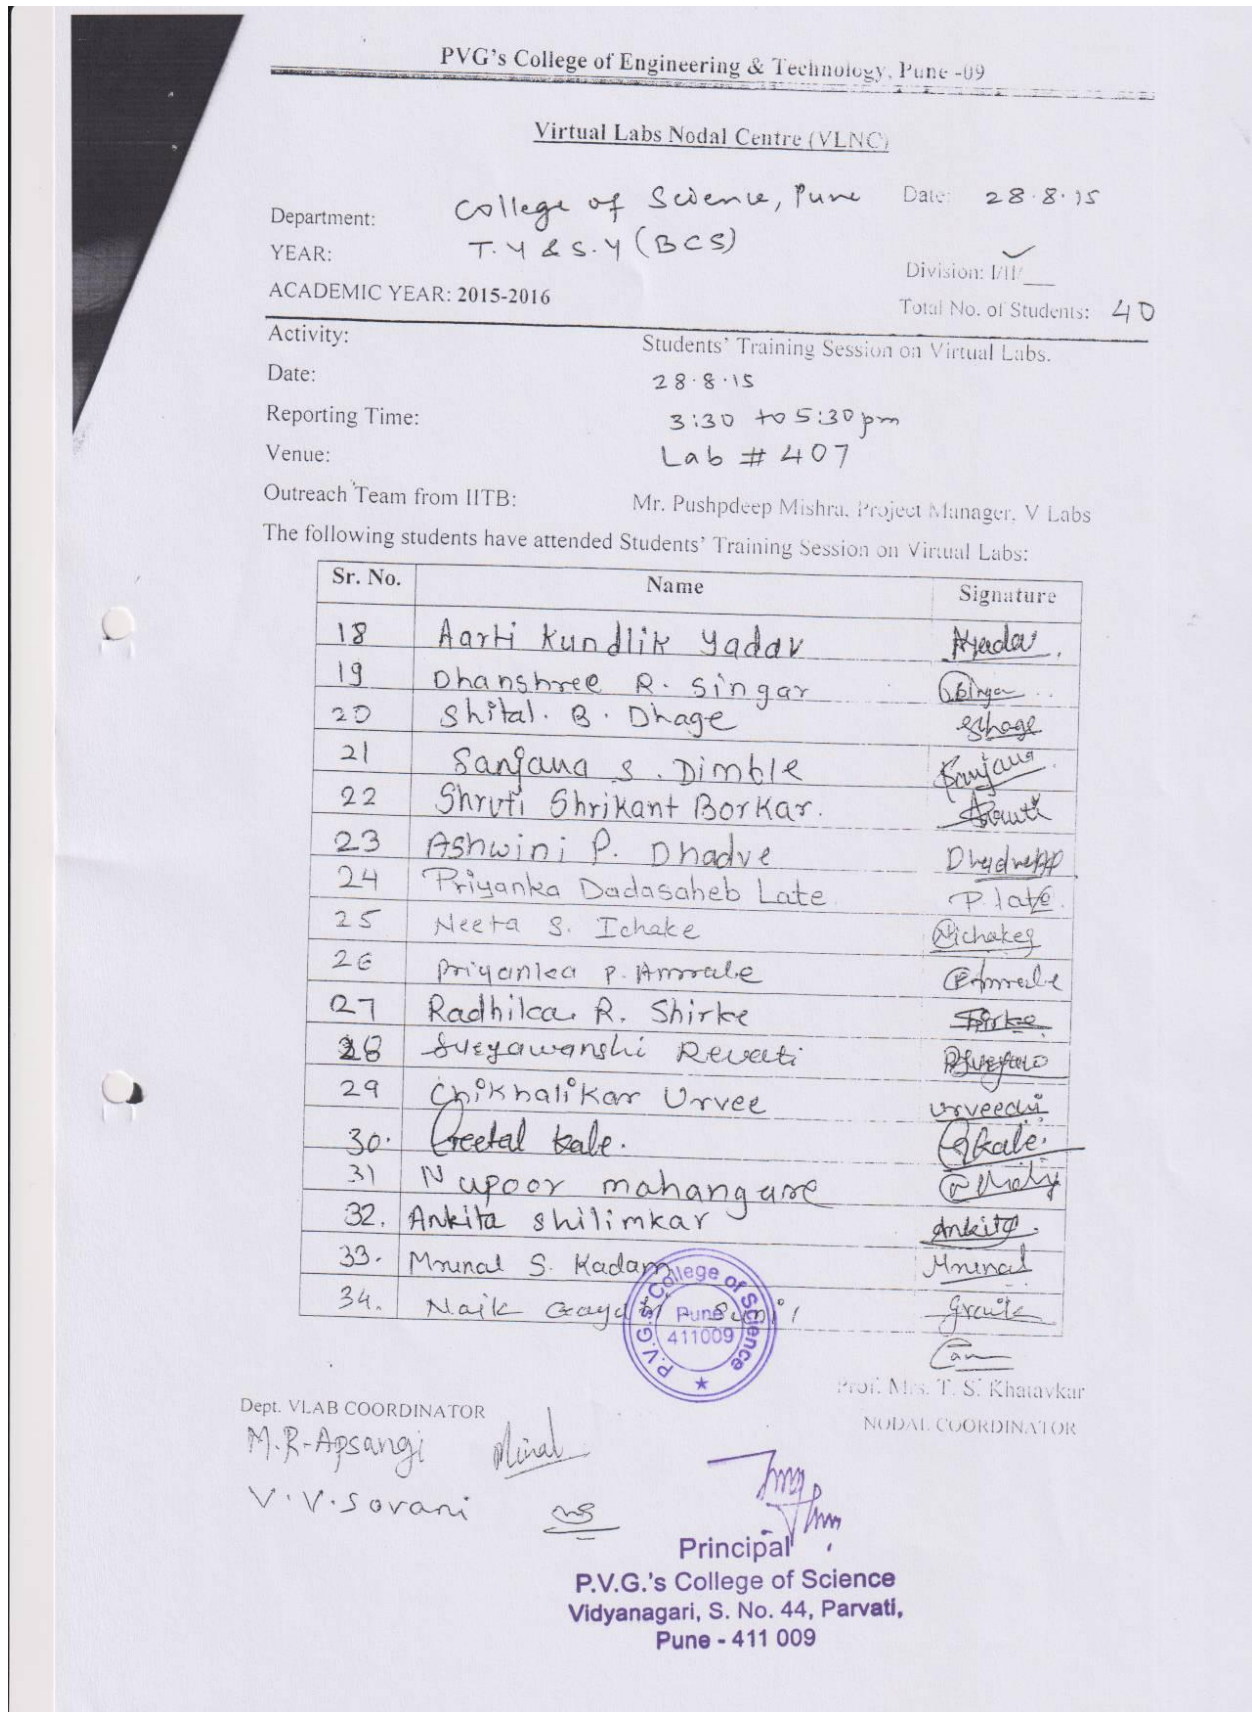 PVG's College of Engineering & Technology, Pune -09
Virtual Labs Nodal Centre (VLNC)
Department: College of Science, Pune Date: 28.8.15
YEAR: T.Y & S.Y (BCS)
Division: I/II/___
ACADEMIC YEAR: 2015-2016
Total No. of Students: 40
Activity: Students' Training Session on Virtual Labs.
Date: 28.8.15
Reporting Time: 3:30 to 5:30pm
Venue: Lab # 407
Outreach Team from IITB: Mr. Pushpdeep Mishra, Project Manager, V Labs
The following students have attended Students' Training Session on Virtual Labs:
Sr. No. Name Signature
18 Aarti Kundlik Yadav Ayadav.
19 Dhanshree R. Singar
20 Shital. B. Dhage
21 Sanjana S. Dimble Sanjana
22 Shruti Shrikant Borkar. Shruti
23 Ashwini P. Dhadve DhadveAP
24 Priyanka Dadasaheb Late P.late.
25 Neeta S. Ichake
26 Priyanka P. Amrale
27 Radhika R. Shirke Shirke
28 Suryawanshi Revati
29 Chikhalikar Urvee
30. Preetal kale.
31 Nupoor mahangare
32. Ankita Shilimkar Ankita.
33. Mrunal S. Kadam Mrunal
34. Naik Gayatri Sunil
P.V.G.s' College of Science
Pune
411009
Prof. Mrs. T. S. Khatavkar
Dept. VLAB COORDINATOR
NODAL COORDINATOR
M.R-Apsangi Minal
V.V.Sovani
Principal
P.V.G.'s College of Science
Vidyanagari, S. No. 44, Parvati,
Pune - 411 009